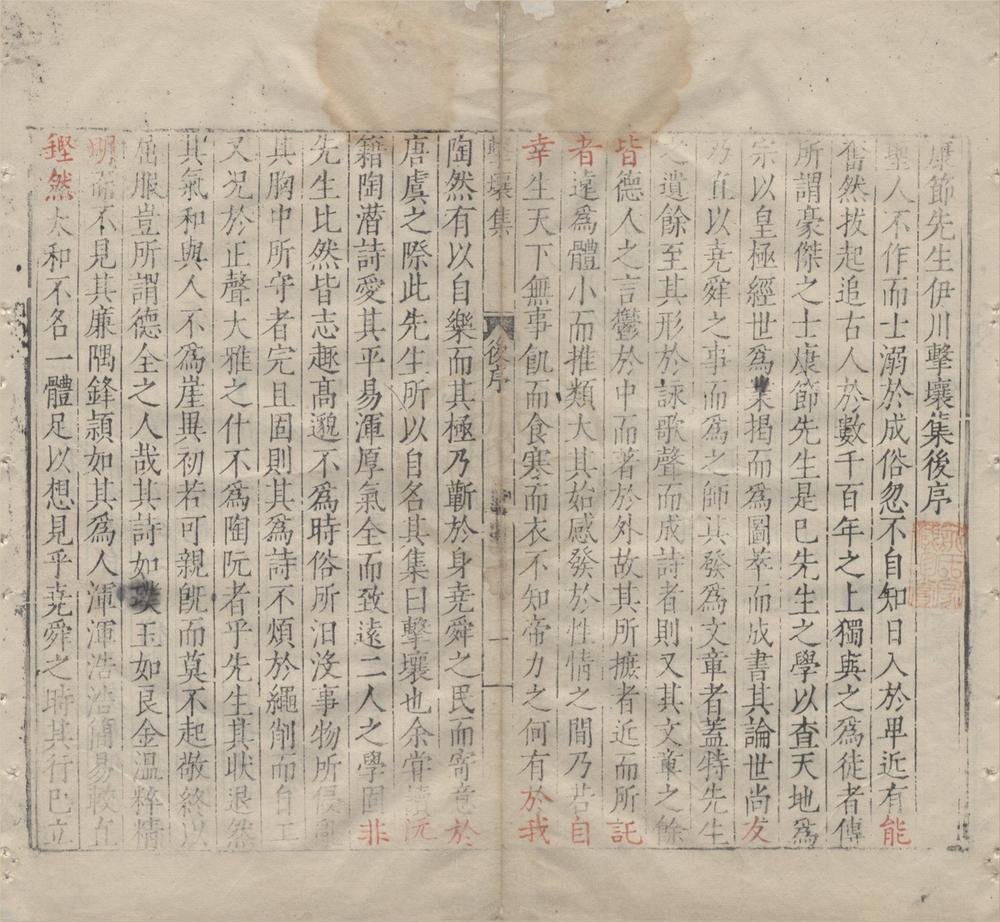 康節先生伊川擊壤集後序
聖人不作而士溺於成俗忽不自知日入於卑近有能
奮然拔起追古人於數千百年之上獨與之為徒者傳
所謂豪傑之士康節先生是已先生之學以查天地為
宗以皇極經世為業揭而為圖萃而成書其論世尚友
乃直以堯舜之事而為之師其發為文章者蓋特先生
之遺餘至其形於詠歌聲而成詩者則又其文章之餘
皆德人之言鬱於中而著於外故其所摭者近而所託
者遠為體小而推類大其始感發於性情之間乃若自
幸生天下無事飢而食寒而衣不知帝力之何有於我
擊壤集
後序
一
陶然有以自樂而其極乃蘄於身堯舜之民而寄意於
唐虞之際此先生所以自名其集曰擊壤也余嘗 阮
籍陶潛詩愛其平易渾厚氣全而致遠二人之學固非
先生比然皆志趣高邈不為時俗所汩沒事物所侵
其胸中所守者完且固則其為詩不煩於繩削而自工
又况於正聲大雅之什不為陶阮者乎先生其耿退然
其氣和與人不為崖異初若可親既而莫不起敬終以
屈服豈所謂德全之人哉其詩如璞玉如良金溫粹精
明而不見其廉隅鋒穎如其為人渾渾浩浩簡易較直
鏗然太和不名一體足以想見乎堯舜之時其行已立